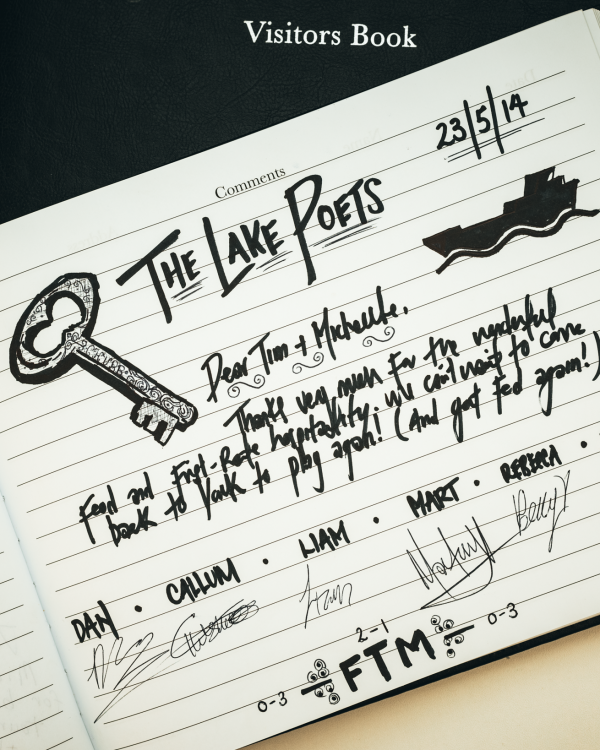 Visitors Book
23/5/14
Comments
THE LAKE POETS
Dear Tim + Michelle.
Thanks very much for the wonderful
food and First-Rate hospitality. We can't wait to come
back to York to play again! (And get fed again!)
DAN • CALLUM • LIAM • MART • REBECCA •
Betty
2-1
0-3 FTM 0-3